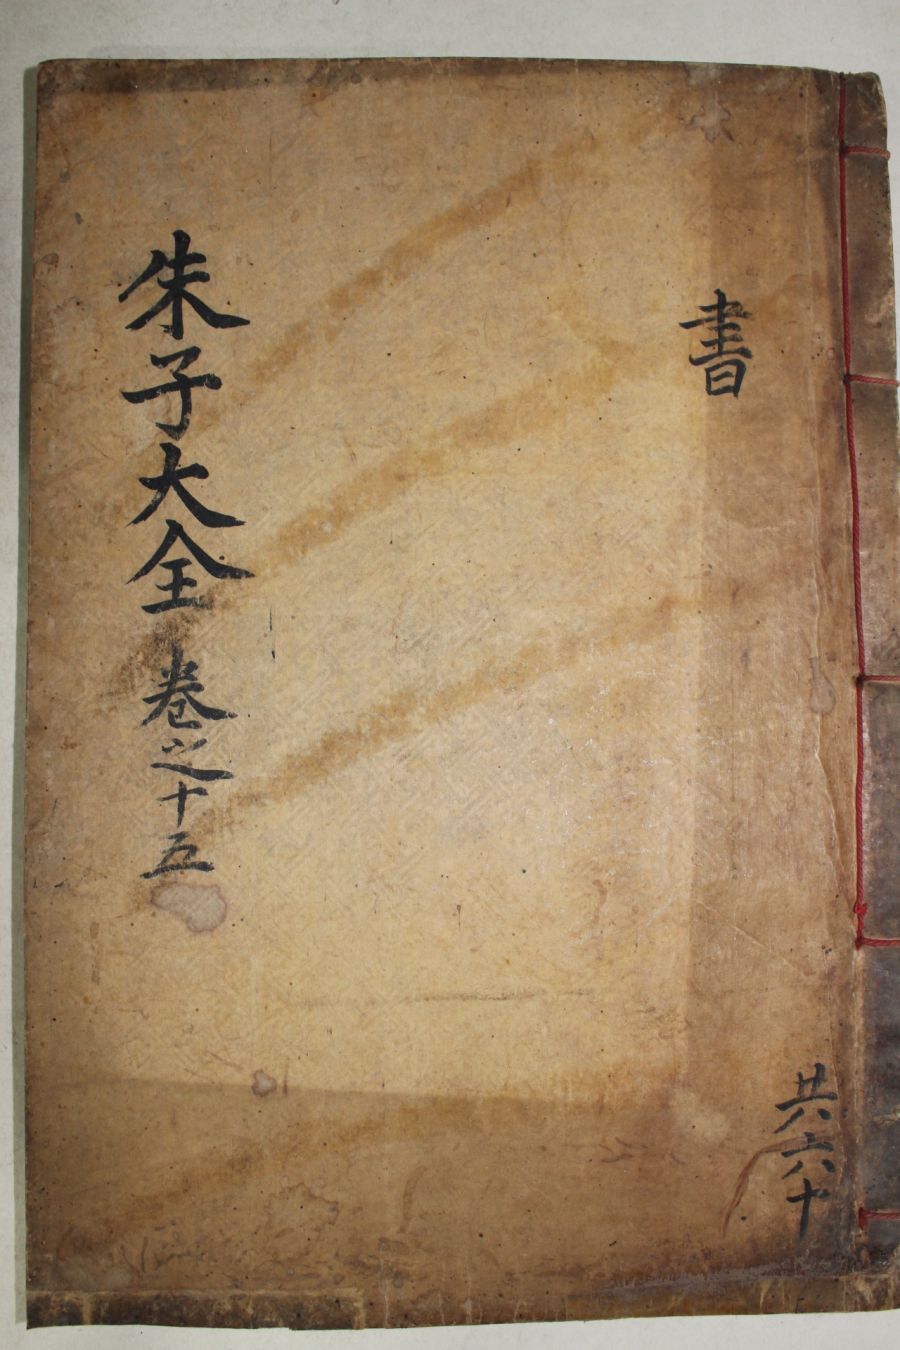 書
共六十
朱子大全 卷之十五